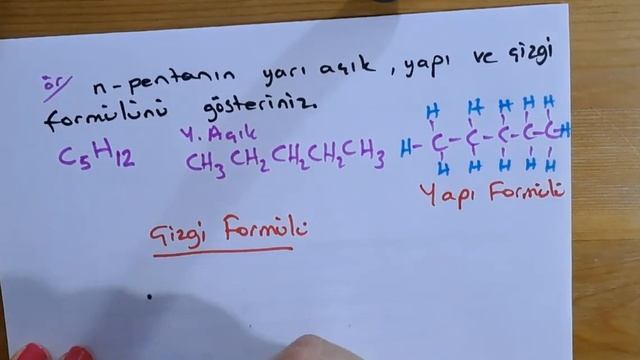 ör/ n-pentanın yarı açık, yapı ve çizgi
formülünü gösteriniz.
Y. Açık
C5H12
CH3CH2CH2CH2CH3
H H H H H
H-C-C-C-C-C-H
H H H H H
Yapı Formülü
Çizgi Formülü